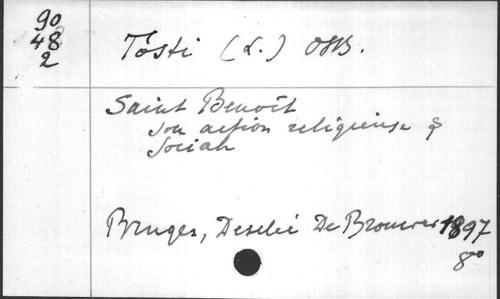 90
48
2
Tosti (L.) OSB.
Saint Benoît
son action religieuse &
sociale
Bruges, Desclée De Brouwer 1897
8°